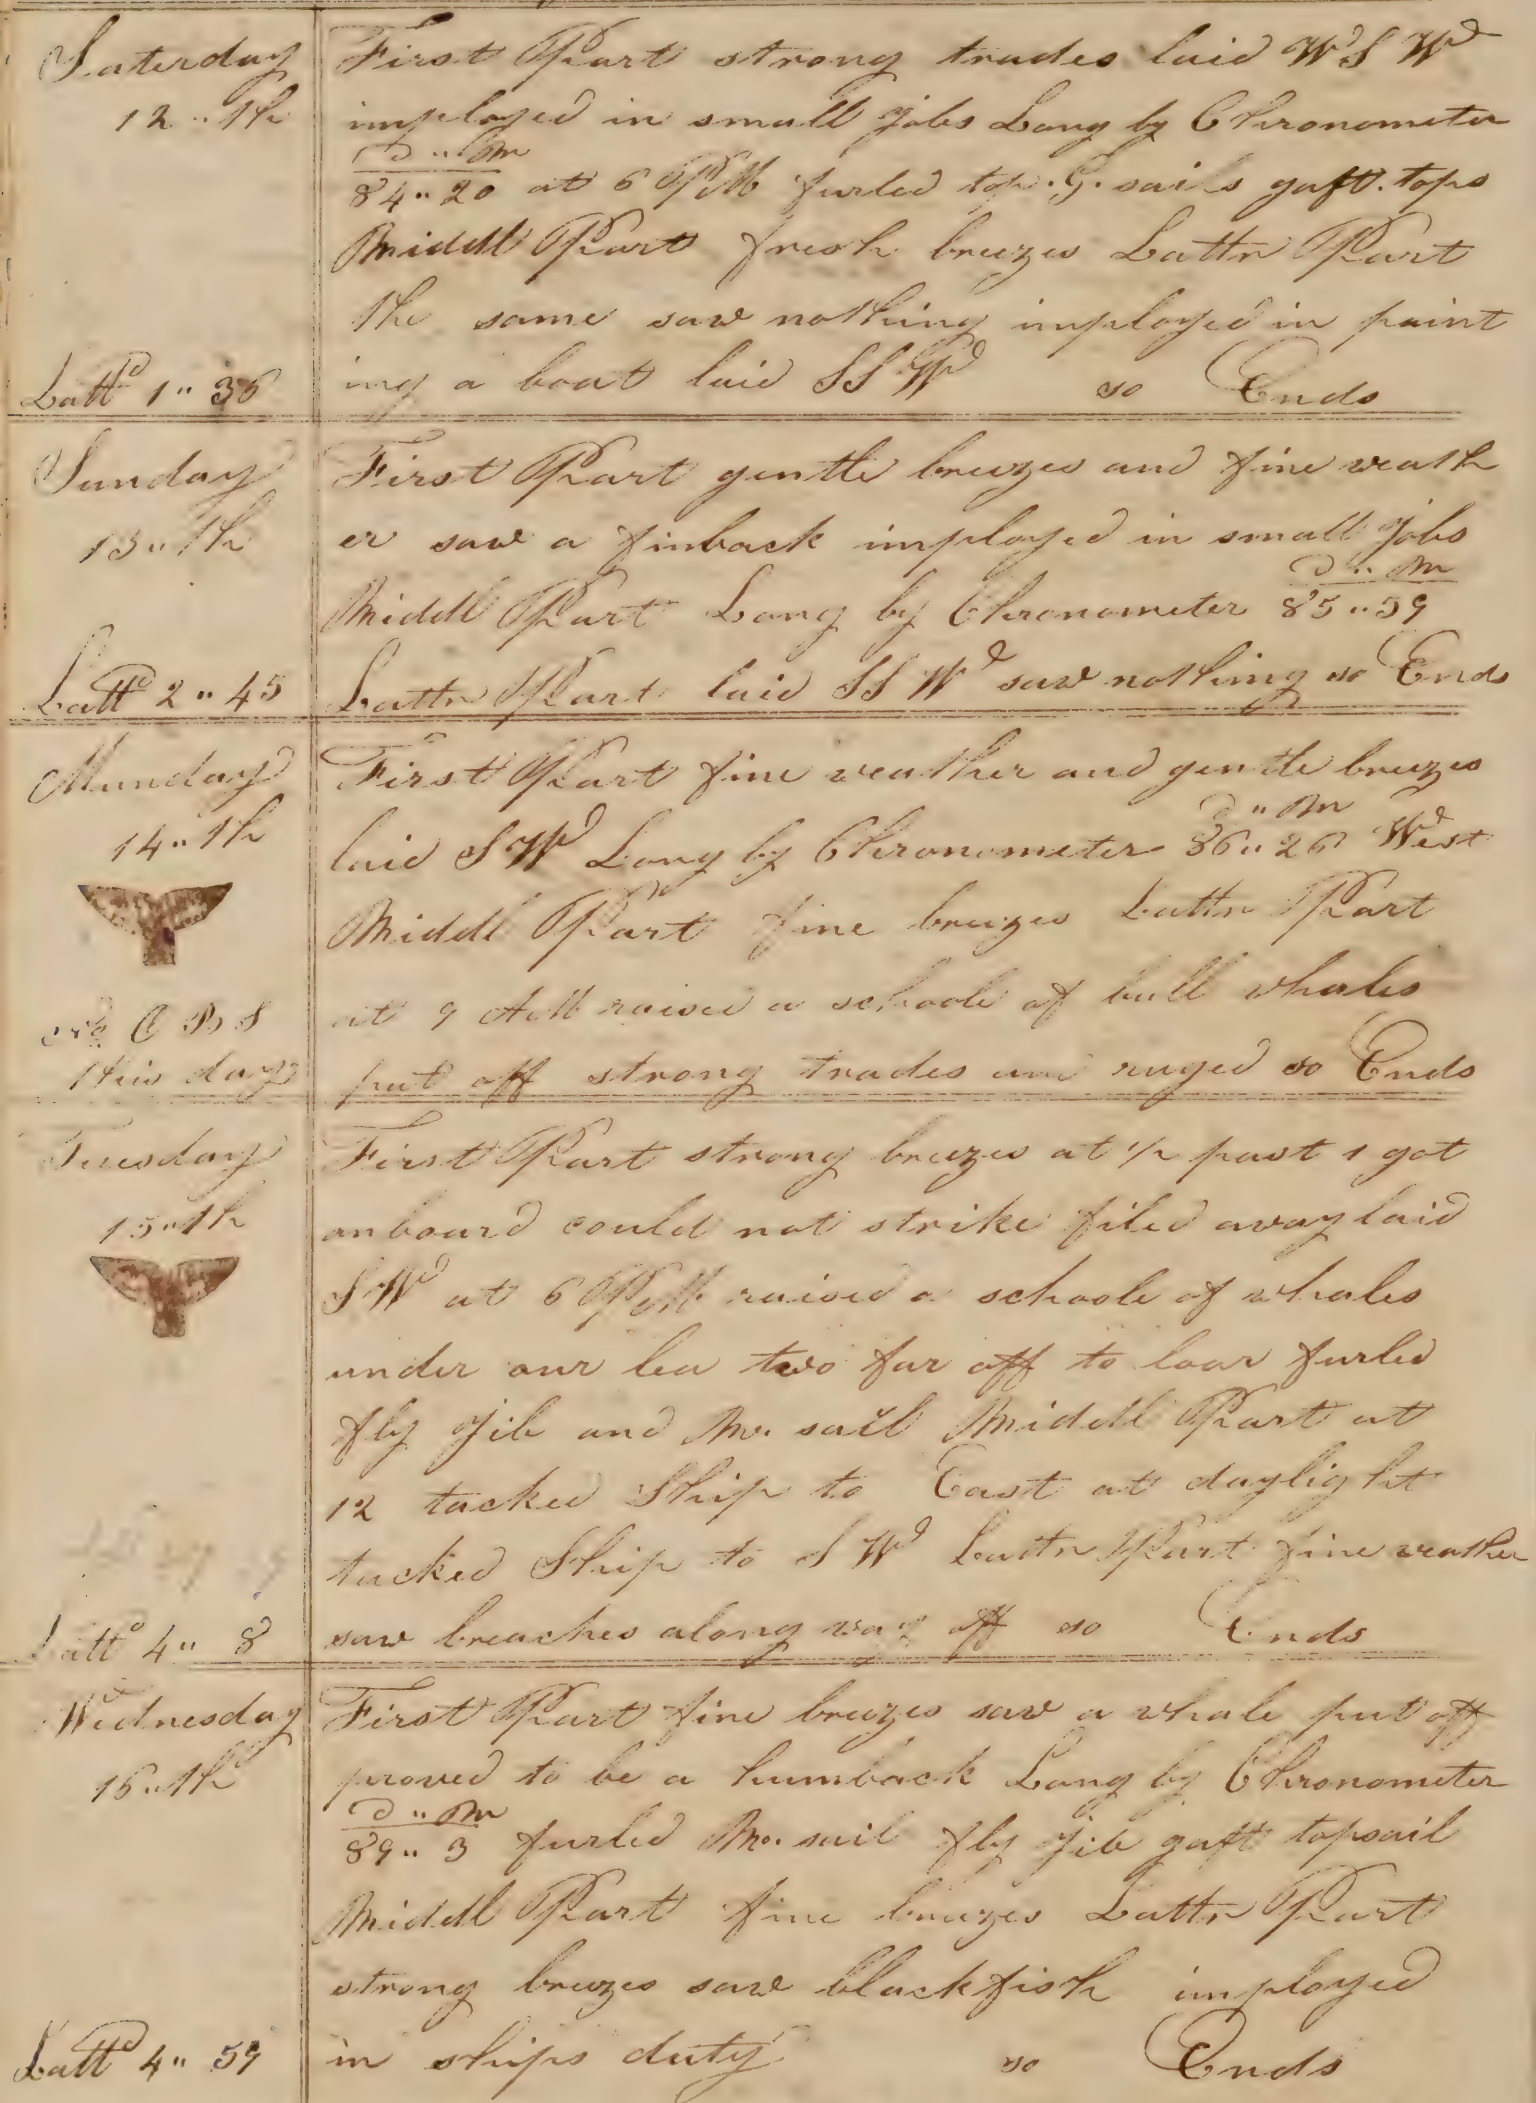 Saterday
12..th
First Part strong trades laid W S Wd
imployed in small jobs Long by Chronometer
D .. M
84..20 at 6 PM furled top.G.sails gaft.tops
Middl Part fresh breezes Lattr Part
the same saw nothing imployed in paint
ing a boat laid S S Wd so Ends
Lattd 1.. 36
Sunday
13..th
First Part gentle breezes and fine weath
er saw a finback imployed in small jobs
D .. M
Middl Part Long by Chronometer 85..59
Lattr Part laid S S Wd saw nothing so Ends
Lattd 2.. 45
Munday
14..th
First Part fine weather and gentle breezes
D .. M
laid S Wd Long by Chronometer 86..26 West
Middl Part fine breezes Lattr Part
at 9 AM raised a schoole of bull whales
put off strong trades and ruged so Ends
this day
Tuesday
15..th
First Part strong breezes at 1/2 past 1 got
onboard could not strike filed away laid
S Wd at 6 PM raised a schoole of whales
under our lea two far off to loar furled
fly jib and M. sail Middl Part at
12 tacked Ship to East at daylight
tacked Ship to S Wd Lattr Part fine weather
saw breaches along way off so Ends
Lattd 4.. 8
Wednesday
16..th
First Part fine breezes saw a whale put off
proved to be a humback Long by Chronometer
D .. M
89.. 3 furled M. sail fly jib gaft topsail
Middl Part fine breezes Lattr Part
strong breezes saw blackfish imployed
in ships duty so Ends
Lattd 4.. 59